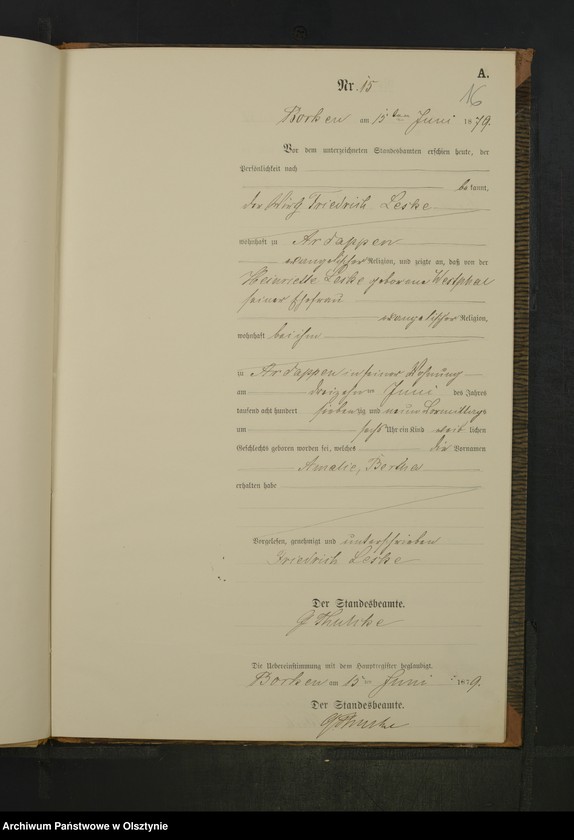 A.
Nr. 15
16
Borken am 15ten Juni 1879.
Vor dem unterzeichneten Standesbeamten erschien heute, der
Persönlichkeit nach
bekannt,
der Wirth Friedrich Leske
wohnhaft zu Ardappen
evangelischer Religion, und zeigte an, daß von der
Heinriette Leske geborene Westphal
seiner Ehefrau
evangelischer Religion,
wohnhaft bei ihm
zu Ardappen in seiner Wohnung
am dreizehn Juni des Jahres
tausend acht hundert siebenzig und neun Vormittags
um sechs Uhr ein Kind weiblichen
Geschlechts geboren worden sei, welches die Vornamen
Amalie, Bertha
erhalten habe
Vorgelesen, genehmigt und unterschrieben
Friedrich Leske
Der Standesbeamte.
Die Uebereinstimmung mit dem Hauptregister beglaubigt.
Borken am 15ten Juni 1879.
Der Standesbeamte.
Archiwum Państwowe w Olsztynie